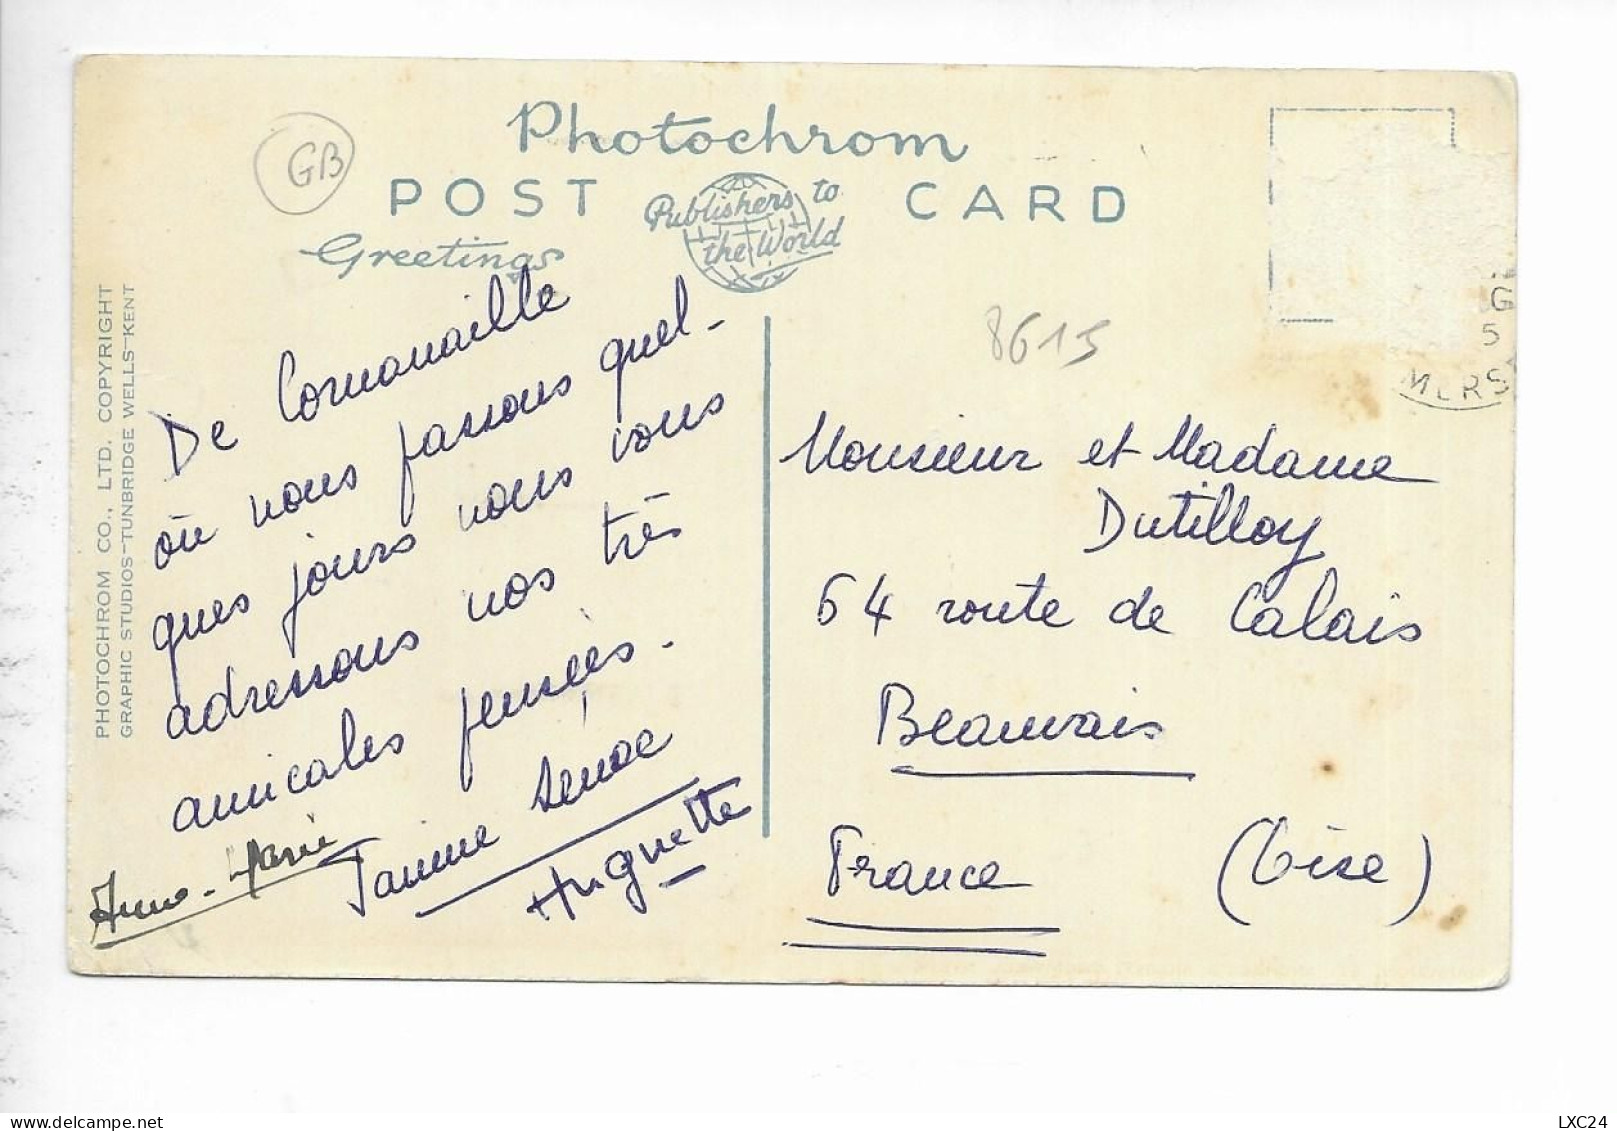 Photochrom
POST CARD
Publishers to
the World
Greetings
GB
8615
G
5
MERS
PHOTOCHROM CO., LTD. COPYRIGHT
GRAPHIC STUDIOS-TUNBRIDGE WELLS-KENT
De Cornouaille
où nous passons quel-
ques jours nous vous
adressons nos très
amicales pensées.
Janine Senac
Anne-Marie
Huguette
Monsieur et Madame
Dutilloy
64 route de Calais
Beauvais
France (Oise)
LXC24